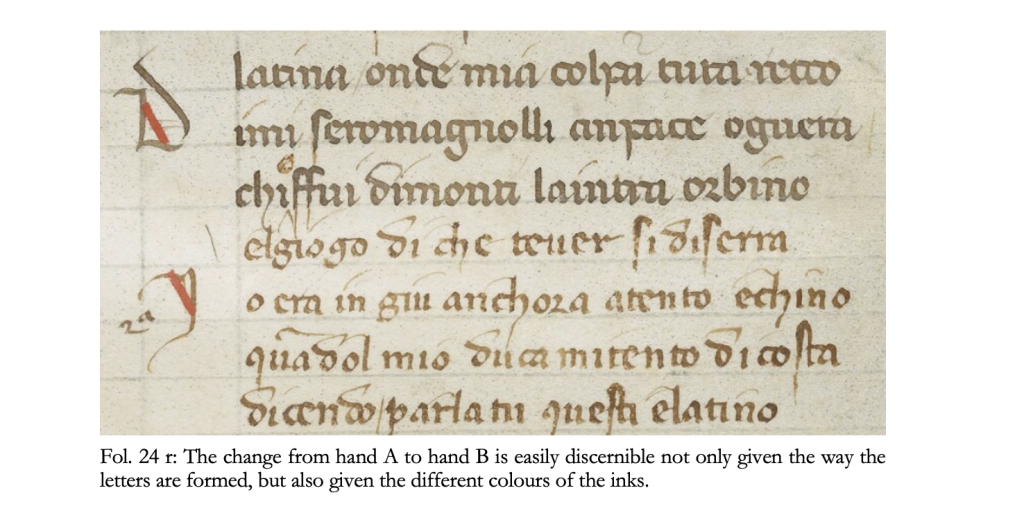 latina onde mia colpa tuta recco
D imi seromagnolli anpace oguera
chioffui dimonti laintra orbino
elgiogo di che teuer si diserra
Y o era in giu anchora atento echino
2a
quādol mio duca mitento di costa
dicendo/parla tu questi elatino
Fol. 24 r: The change from hand A to hand B is easily discernible not only given the way the
letters are formed, but also given the different colours of the inks.